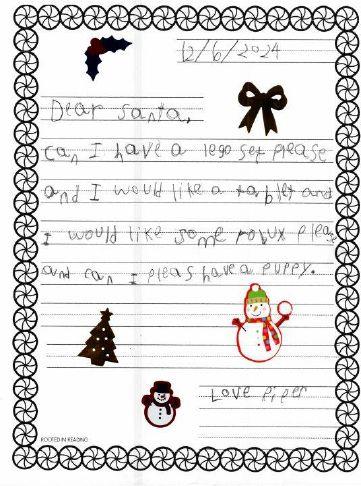 12/6/2024
Dear santa,
can I have a lego set please
and I would like a tablet and
I would like some robux please
and can I pleas have a puppy.
Love Piper
ROOTED IN READING